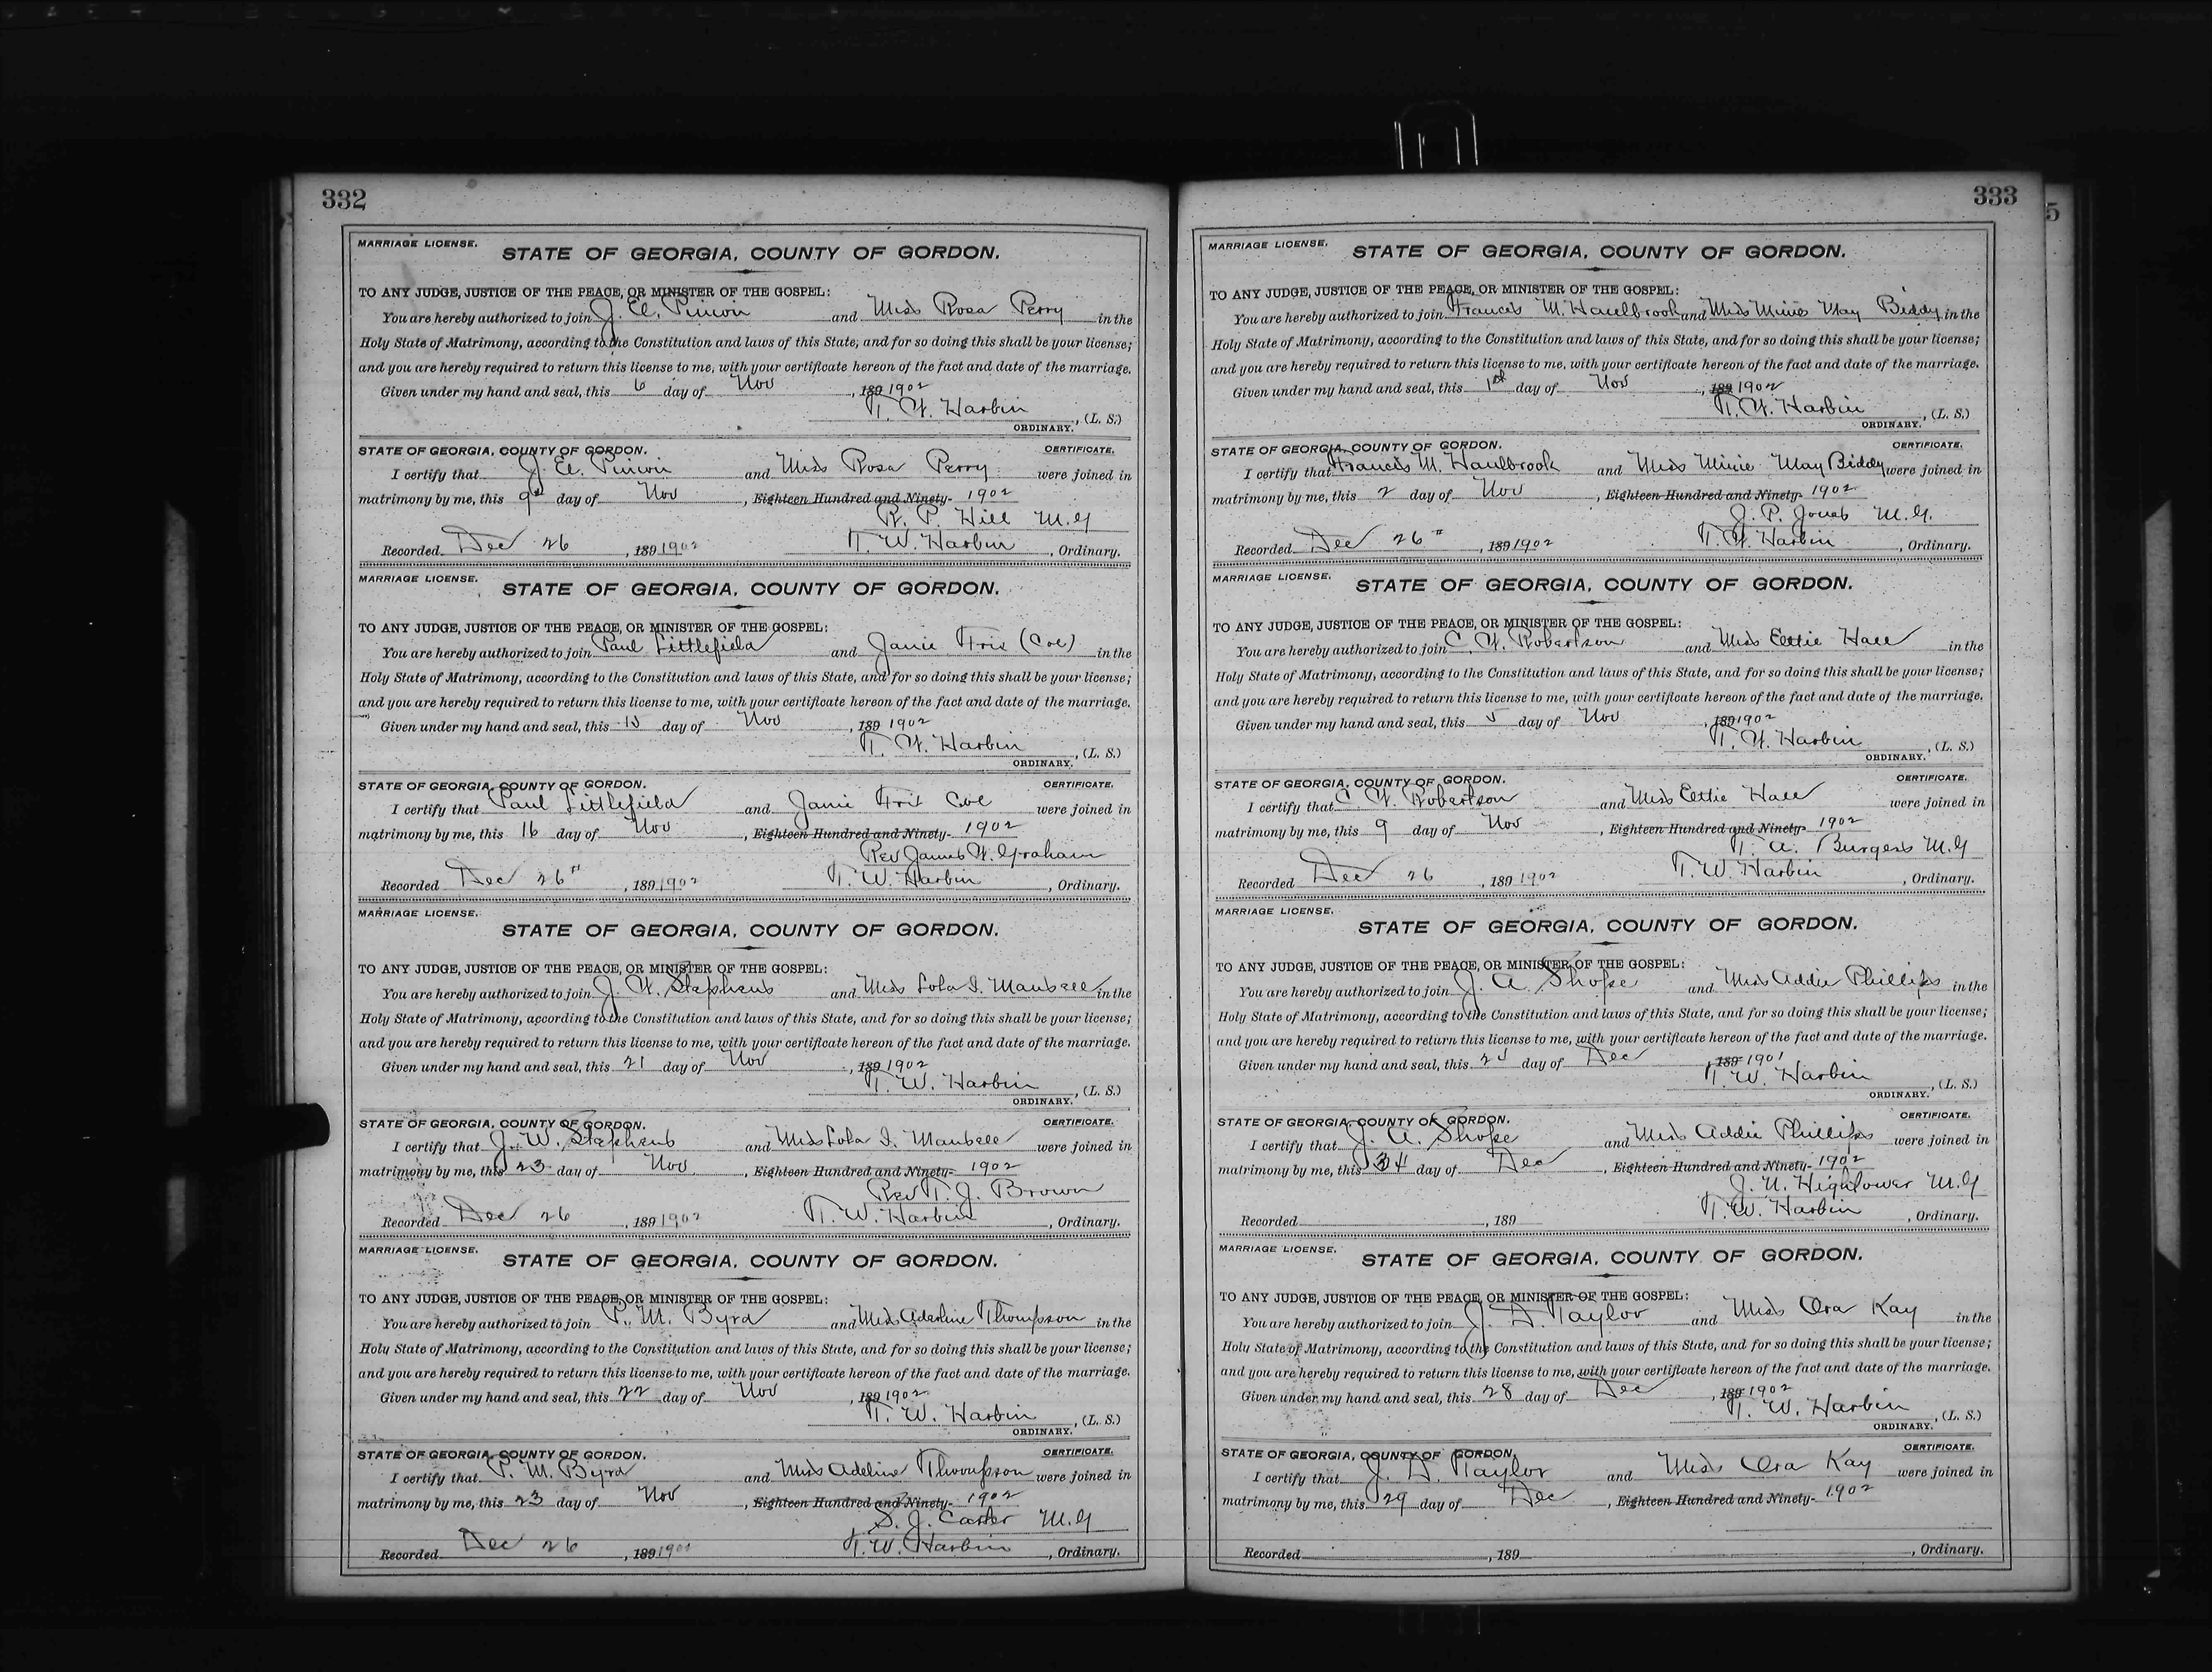 332
MARRIAGE LICENSE.
STATE OF GEORGIA, COUNTY OF GORDON.
TO ANY JUDGE, JUSTICE OF THE PEACE, OR MINISTER OF THE GOSPEL:
You are hereby authorized to join J. E. Pinion and Miss Rosa Perry in the
Holy State of Matrimony, according to the Constitution and laws of this State, and for so doing this shall be your license;
and you are hereby required to return this license to me, with your certificate hereon of the fact and date of the marriage.
Given under my hand and seal, this 6 day of Nov, 189 1902
T. W. Harbin, (L. S.)
ORDINARY.
STATE OF GEORGIA, COUNTY OF GORDON. CERTIFICATE.
I certify that J. E. Pinion and Miss Rosa Perry were joined in
matrimony by me, this 9th day of Nov, Eighteen Hundred and Ninety- 1902
R. P. Hill M.G
Recorded Dec 26, 189 1902 T. W. Harbin, Ordinary.
MARRIAGE LICENSE.
STATE OF GEORGIA, COUNTY OF GORDON.
TO ANY JUDGE, JUSTICE OF THE PEACE, OR MINISTER OF THE GOSPEL:
You are hereby authorized to join Paul Littlefield and Janie Fris (Col) in the
Holy State of Matrimony, according to the Constitution and laws of this State, and for so doing this shall be your license;
and you are hereby required to return this license to me, with your certificate hereon of the fact and date of the marriage.
Given under my hand and seal, this 15 day of Nov, 189 1902
T. W. Harbin, (L. S.)
ORDINARY.
STATE OF GEORGIA, COUNTY OF GORDON. CERTIFICATE.
I certify that Paul Littlefield and Janie Fris Col were joined in
matrimony by me, this 16 day of Nov, Eighteen Hundred and Ninety- 1902
Rev James W. Graham
Recorded Dec 26th, 189 1902 T. W. Harbin, Ordinary.
MARRIAGE LICENSE.
STATE OF GEORGIA, COUNTY OF GORDON.
TO ANY JUDGE, JUSTICE OF THE PEACE, OR MINISTER OF THE GOSPEL:
You are hereby authorized to join J. W. Stephens and Miss Lola I. Mansell in the
Holy State of Matrimony, according to the Constitution and laws of this State, and for so doing this shall be your license;
and you are hereby required to return this license to me, with your certificate hereon of the fact and date of the marriage.
Given under my hand and seal, this 21 day of Nov, 189 1902
T. W. Harbin, (L. S.)
ORDINARY.
STATE OF GEORGIA, COUNTY OF GORDON. CERTIFICATE.
I certify that J. W. Stephens and Miss Lola I. Mansell were joined in
matrimony by me, this 23 day of Nov, Eighteen Hundred and Ninety- 1902
Rev T. J. Brown
Recorded Dec 26, 189 1902 T. W. Harbin, Ordinary.
MARRIAGE LICENSE.
STATE OF GEORGIA, COUNTY OF GORDON.
TO ANY JUDGE, JUSTICE OF THE PEACE, OR MINISTER OF THE GOSPEL:
You are hereby authorized to join P. M. Byrd and Miss Adeline Thompson in the
Holy State of Matrimony, according to the Constitution and laws of this State, and for so doing this shall be your license;
and you are hereby required to return this license to me, with your certificate hereon of the fact and date of the marriage.
Given under my hand and seal, this 22 day of Nov, 189 1902
T. W. Harbin, (L. S.)
ORDINARY.
STATE OF GEORGIA, COUNTY OF GORDON. CERTIFICATE.
I certify that P. M. Byrd and Miss Adeline Thompson were joined in
matrimony by me, this 23 day of Nov, Eighteen Hundred and Ninety- 1902
S. J. Carter M.G
Recorded Dec 26, 189 1902 T. W. Harbin, Ordinary.
333
5
MARRIAGE LICENSE.
STATE OF GEORGIA, COUNTY OF GORDON.
TO ANY JUDGE, JUSTICE OF THE PEACE, OR MINISTER OF THE GOSPEL:
You are hereby authorized to join Francis M. Haulbrook and Miss Minie May Biddy in the
Holy State of Matrimony, according to the Constitution and laws of this State, and for so doing this shall be your license;
and you are hereby required to return this license to me, with your certificate hereon of the fact and date of the marriage.
Given under my hand and seal, this 1st day of Nov, 189 1902
T. W. Harbin, (L. S.)
ORDINARY.
STATE OF GEORGIA, COUNTY OF GORDON. CERTIFICATE.
I certify that Francis M. Haulbrook and Miss Minie May Biddy were joined in
matrimony by me, this 2 day of Nov, Eighteen Hundred and Ninety- 1902
J. P. Jones M.G.
Recorded Dec 26th, 189 1902 T. W. Harbin, Ordinary.
MARRIAGE LICENSE.
STATE OF GEORGIA, COUNTY OF GORDON.
TO ANY JUDGE, JUSTICE OF THE PEACE, OR MINISTER OF THE GOSPEL:
You are hereby authorized to join C. W. Robertson and Miss Ettie Hall in the
Holy State of Matrimony, according to the Constitution and laws of this State, and for so doing this shall be your license;
and you are hereby required to return this license to me, with your certificate hereon of the fact and date of the marriage.
Given under my hand and seal, this 5 day of Nov, 189 1902
T. W. Harbin, (L. S.)
ORDINARY.
STATE OF GEORGIA, COUNTY OF GORDON. CERTIFICATE.
I certify that C. W. Robertson and Miss Ettie Hall were joined in
matrimony by me, this 9 day of Nov, Eighteen Hundred and Ninety- 1902
T. A. Burgess M.G
Recorded Dec 26, 189 1902 T. W. Harbin, Ordinary.
MARRIAGE LICENSE.
STATE OF GEORGIA, COUNTY OF GORDON.
TO ANY JUDGE, JUSTICE OF THE PEACE, OR MINISTER OF THE GOSPEL:
You are hereby authorized to join J. A. Shope and Miss Addie Phillips in the
Holy State of Matrimony, according to the Constitution and laws of this State, and for so doing this shall be your license;
and you are hereby required to return this license to me, with your certificate hereon of the fact and date of the marriage.
Given under my hand and seal, this day of Dec, 189 1901
T. W. Harbin, (L. S.)
ORDINARY.
STATE OF GEORGIA, COUNTY OF GORDON. CERTIFICATE.
I certify that J. A. Shope and Miss Addie Phillips were joined in
matrimony by me, this day of Dec, Eighteen Hundred and Ninety- 1902
J. N. Hightower M.G
T. W. Harbin
Recorded , 189 , Ordinary.
MARRIAGE LICENSE.
STATE OF GEORGIA, COUNTY OF GORDON.
TO ANY JUDGE, JUSTICE OF THE PEACE, OR MINISTER OF THE GOSPEL:
You are hereby authorized to join J. D. Taylor and Miss Ora Kay in the
Holy State of Matrimony, according to the Constitution and laws of this State, and for so doing this shall be your license;
and you are hereby required to return this license to me, with your certificate hereon of the fact and date of the marriage.
Given under my hand and seal, this 28 day of Dec, 189 1902
T. W. Harbin, (L. S.)
ORDINARY.
STATE OF GEORGIA, COUNTY OF GORDON. CERTIFICATE.
I certify that J. D. Taylor and Miss Ora Kay were joined in
matrimony by me, this 29 day of Dec, Eighteen Hundred and Ninety- 1902
Recorded , 189 , Ordinary.